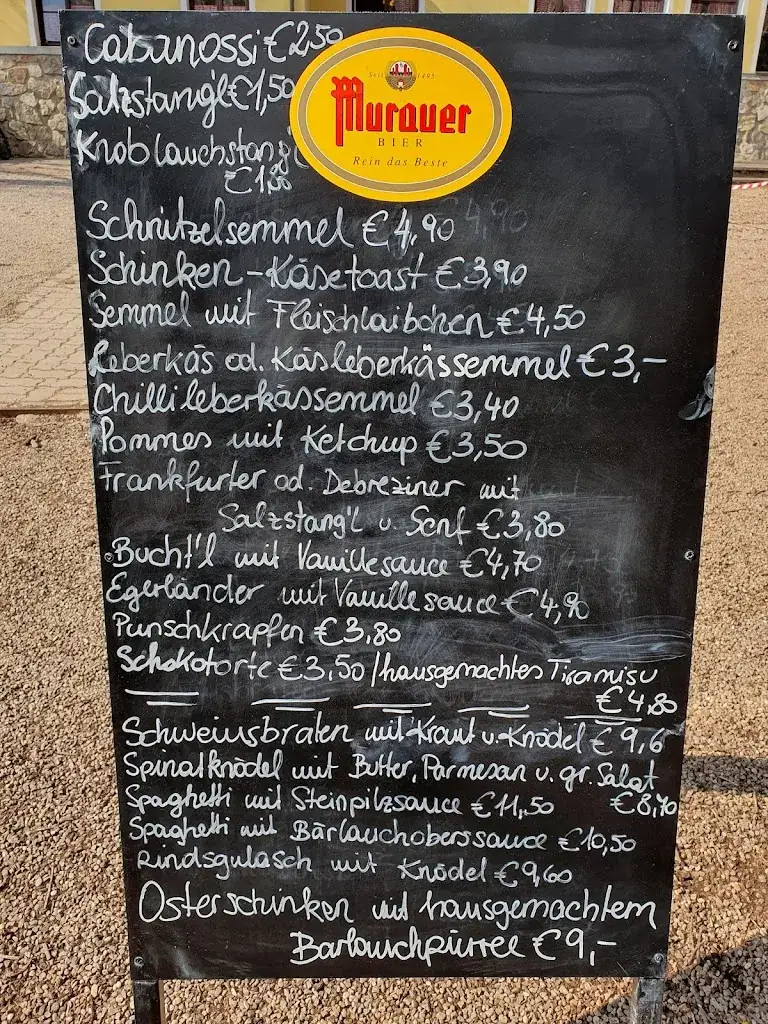 Cabanossi €2,50
Salzstang'l €1,50
Knoblauchstang'l
€1,80
Seit 1495
Murauer
BIER
Rein das Beste
Schnitzelsemmel €4,90
Schinken-Käsetoast €3,90
Semmel mit Fleischlaibchen €4,50
Leberkäs od. Käsleberkässemmel €3,-
Chillileberkässemmel €3,40
Pommes mit Ketchup €3,50
Frankfurter od. Debreziner mit
Salzstang'l u. Senf €3,80
Bucht'l mit Vanillesauce €4,70
Egerländer mit Vanillesauce €4,90
Punschkrapfen €3,80
Schokotorte €3,50/hausgemachtes Tiramisu
€4,80
Schweinsbraten mit Kraut u. Knödel €9,6
Spinatknödel mit Butter, Parmesan u. gr. Salat
€8,70
Spaghetti mit Steinpilzsauce €11,50
Spaghetti mit Bärlauchoberssauce €10,50
Rindsgulasch mit Knödel €9,60
Osterschinken mit hausgemachtem
Bärlauchpürree €9,-